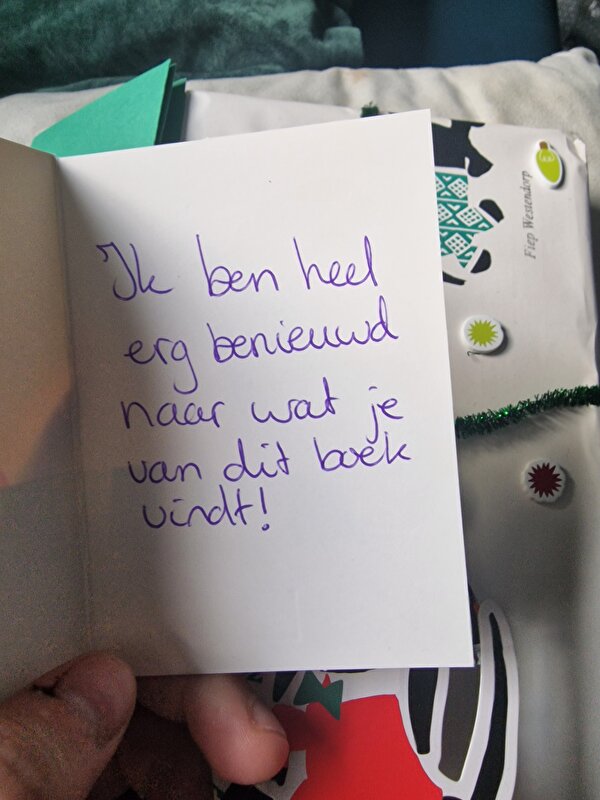 Ik ben heel
erg benieuwd
naar wat je
van dit boek
vindt!
Fiep Westendorp